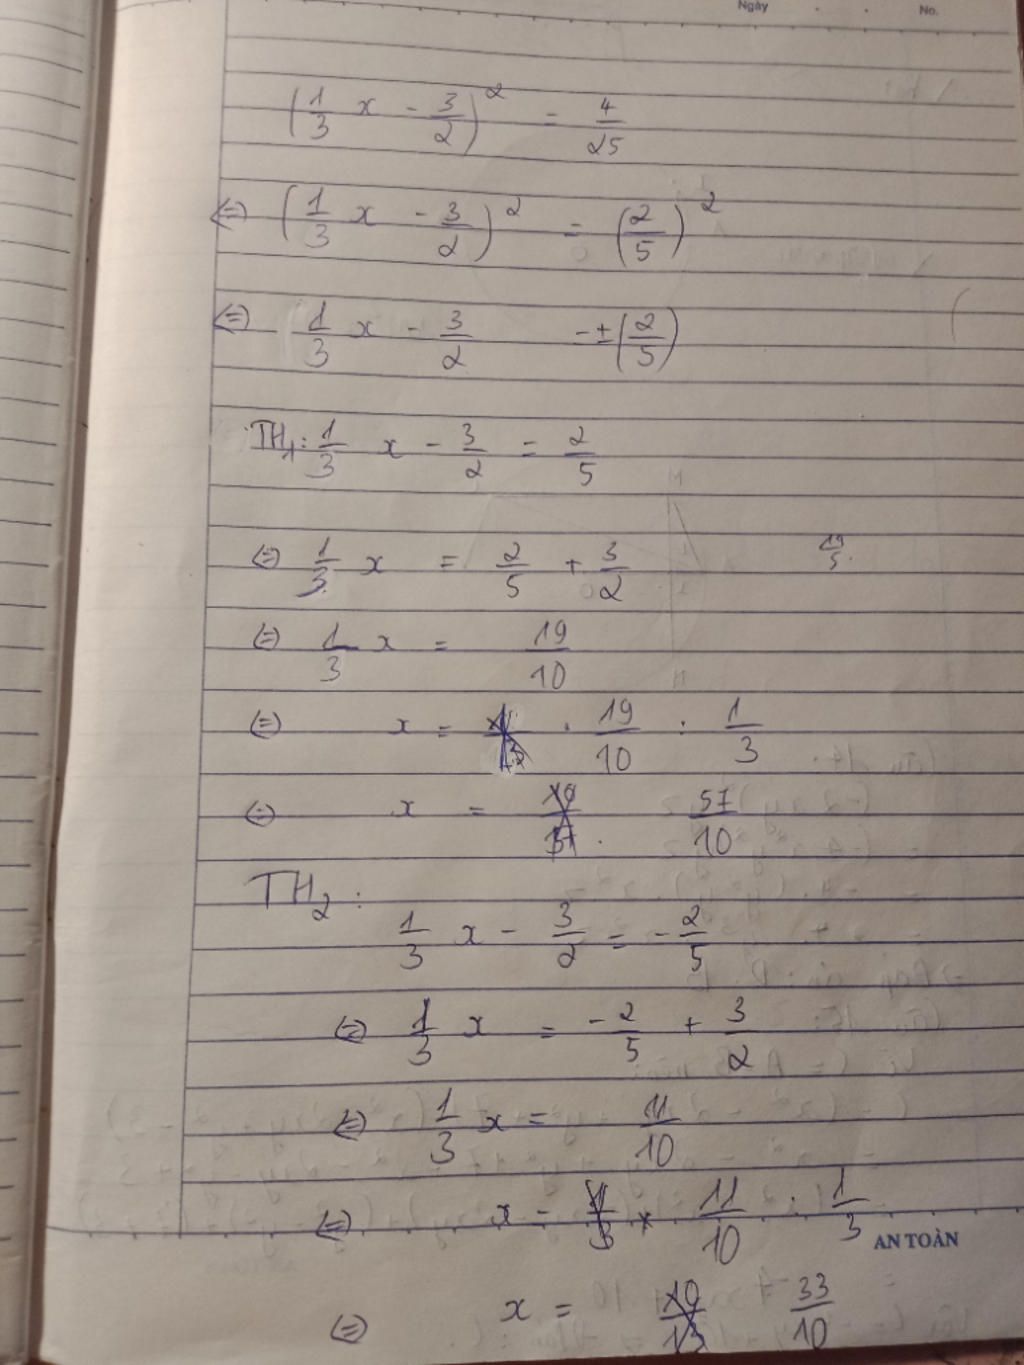 Ngày . . No.
(1/3 x - 3/2)² = 4/25
⇔ (1/3 x - 3/2)² = (2/5)²
⇔ 1/3 x - 3/2 -±(2/5)
TH1: 1/3 x - 3/2 = 2/5
⇔ 1/3 x = 2/5 + 3/2 19/5
⇔ 1/3 x = 19/10
⇔ x = . 19/10 : 1/3
⇔ x = 57/10
TH2:
1/3 x - 3/2 = -2/5
⇔ 1/3 x = -2/5 + 3/2
⇔ 1/3 x = 11/10
⇔ x = × 11/10 : 1/3
AN TOÀN
⇔ x = 33/10